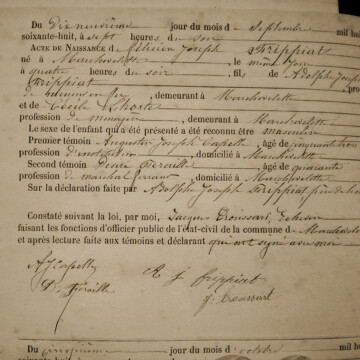 Du Dix neuvième jour du mois de Septembre mil huit
soixante-huit, à sept heures du soir
ACTE DE NAISSANCE de Félicien Joseph Frippiat
né à Marchovelette le même jour
à quatre heures du soir, fils de Adolphe Joseph
Frippiat
, demeurant à Marchovelette
et de Cécile Lhoste
profession de ménagère, demeurant à Marchovelette
Le sexe de l'enfant qui a été présenté a été reconnu être masculin
Premier témoin Augustin Joseph Capelle, âgé de cinquante trois
profession d'instituteur, domicilié à Marchovelette
Second témoin Désiré, âgé de quarante
profession de maréchal ferrant, domicilié à Marchovelette
Sur la déclaration faite par Adolphe Joseph Frippiat père de l'en
Constaté suivant la loi, par moi, Jacques Broissart, Echevin
faisant les fonctions d'officier public de l'état-civil de la commune de Marchovelette
et après lecture faite aux témoins et déclarant qui ont signé avec moi
A J Capelle
A J frippiat
D.
J.
Du cinquième jour du mois d'octobre mil huit